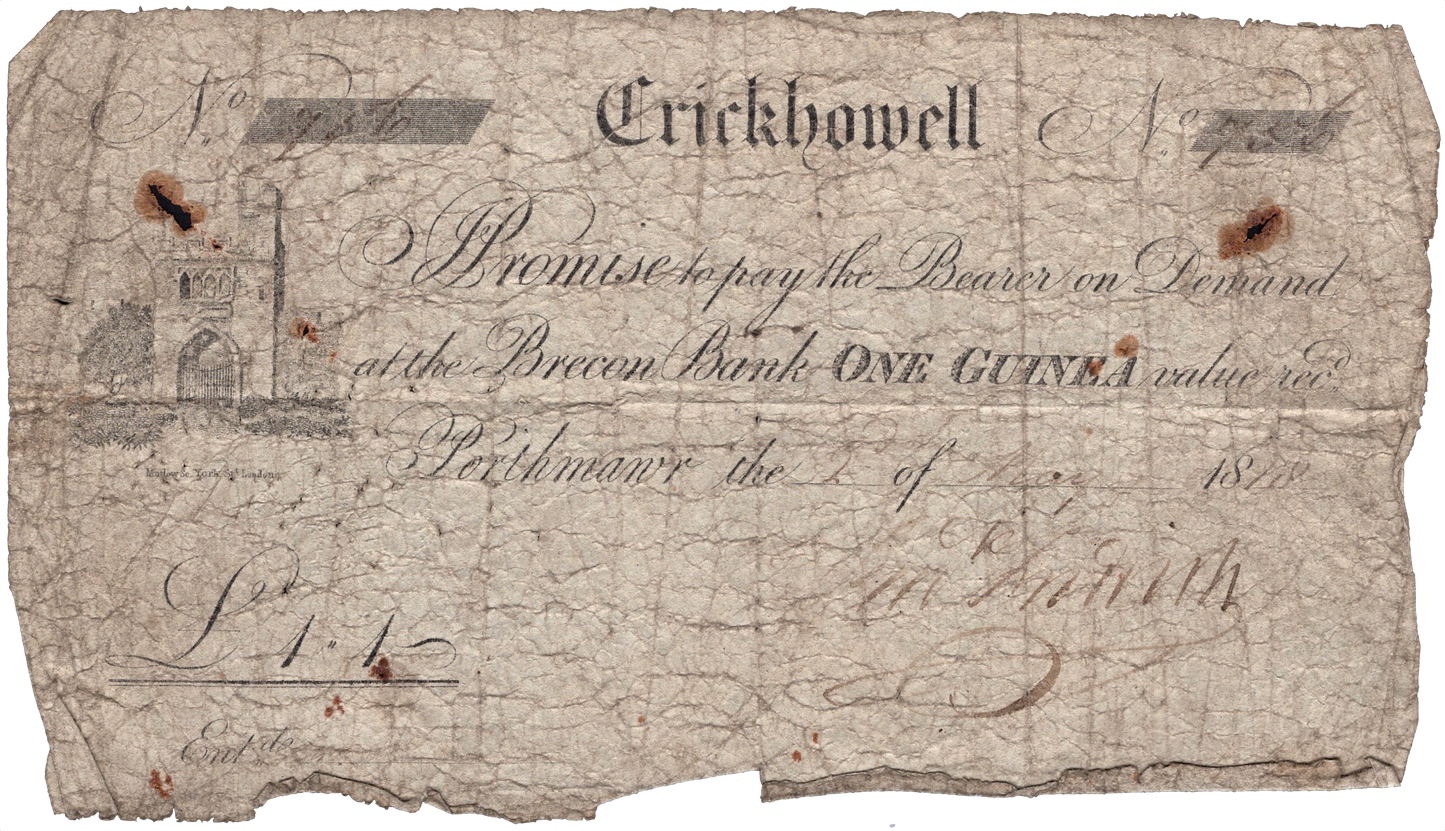 No. 736 Crickhowell No. 736
I Promise to pay the Bearer on Demand
at the Brecon Bank ONE GUINEA value recd.
Porthmawr the 2 of May 1818
York St. London
£ 1 " 1
Entd.